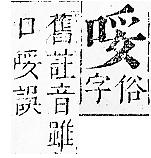 哸
俗
字
舊註音雖
口哸誤